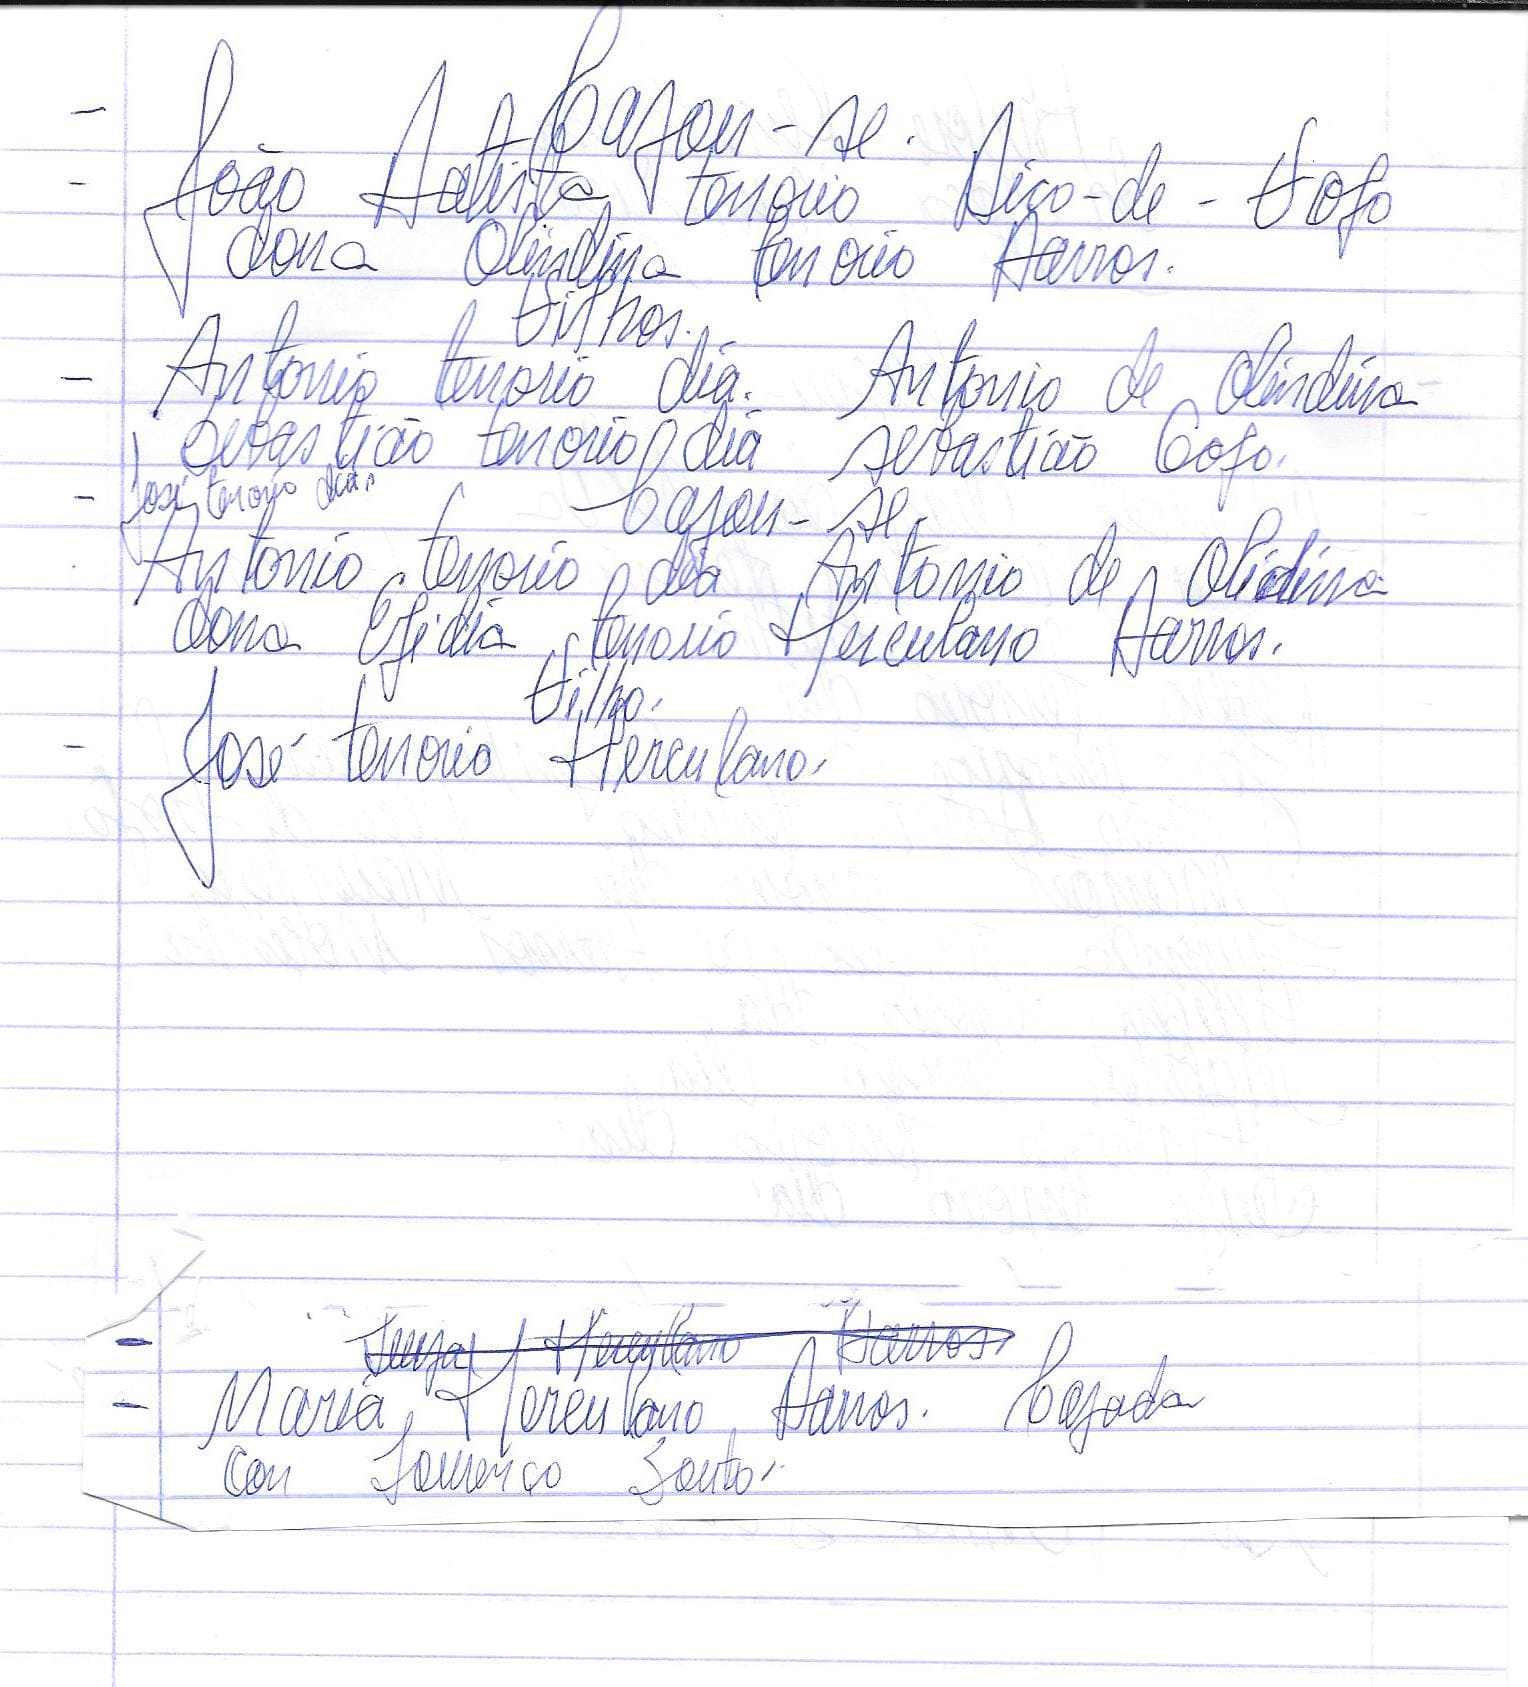 Cazou-se.
João Batista tenorio Bico-de-Fogo
dona Olindina tenorio Barros.
Filhos.
Antonio tenorio diá. Antonio de Olindina
Sebastião tenorio diá Sebastião Gogo.
José tenorio diá.
Cazou-se.
Antonio tenorio diá Antonio de Olidina
dona Egidia tenorio Herculano Barros.
Filho.
José tenorio Herculano.
Herculano Barros.
Maria Herculano Barros. Cazada
con Lourenço Santos.